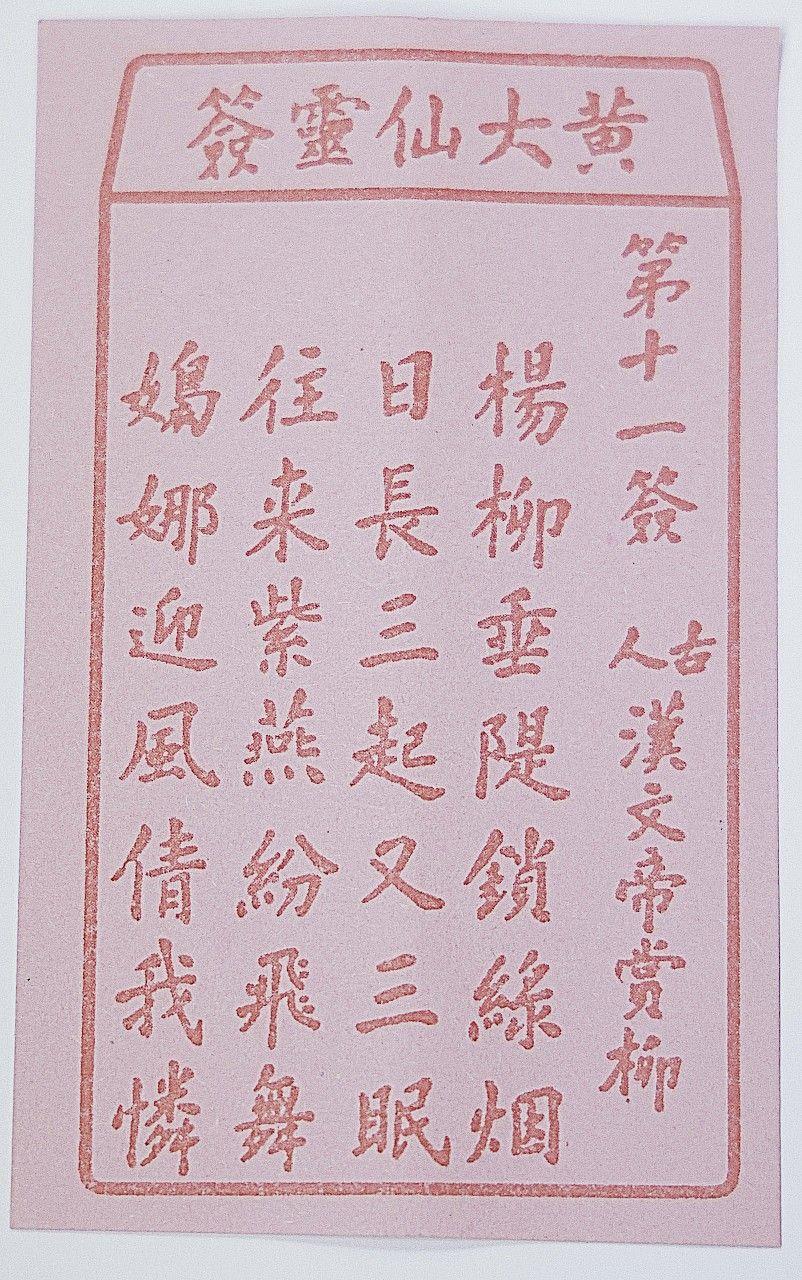 黄大仙靈簽
第十一簽 古人漢文帝賞柳
楊柳垂隄鎖綠烟
日長三起又三眠
往来紫燕紛飛舞
嬝娜迎風倩我憐